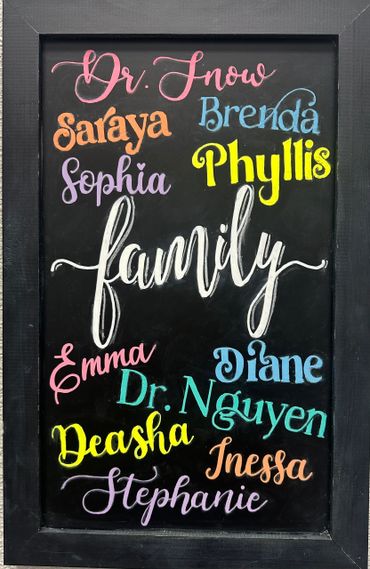 Dr. Snow
Brenda
Saraya
Phyllis
Sophia
family
Emma
Diane
Dr. Nguyen
Deasha
Inessa
Stephanie